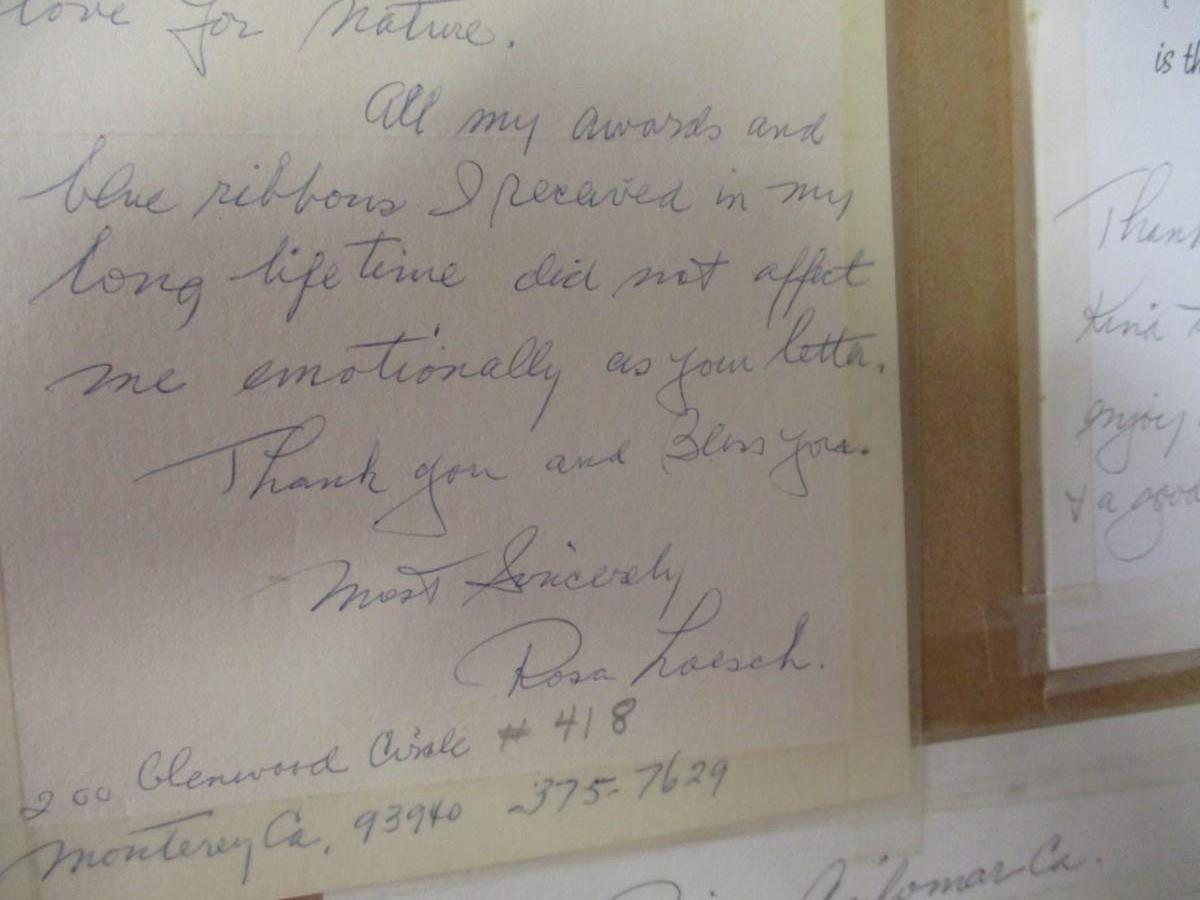 love for nature.
All my awards and
blue ribbons I receaved in my
long lifetime did not affect
me emotionally as your letter.
Thank you and Bless you.
Most Sincerely
Rosa Loesch.
200 Glenwood Circle # 418
Monterey Ca. 93940 375-7629
is th
Thank
Kind
enjoy
& a good
Asilomar Ca.